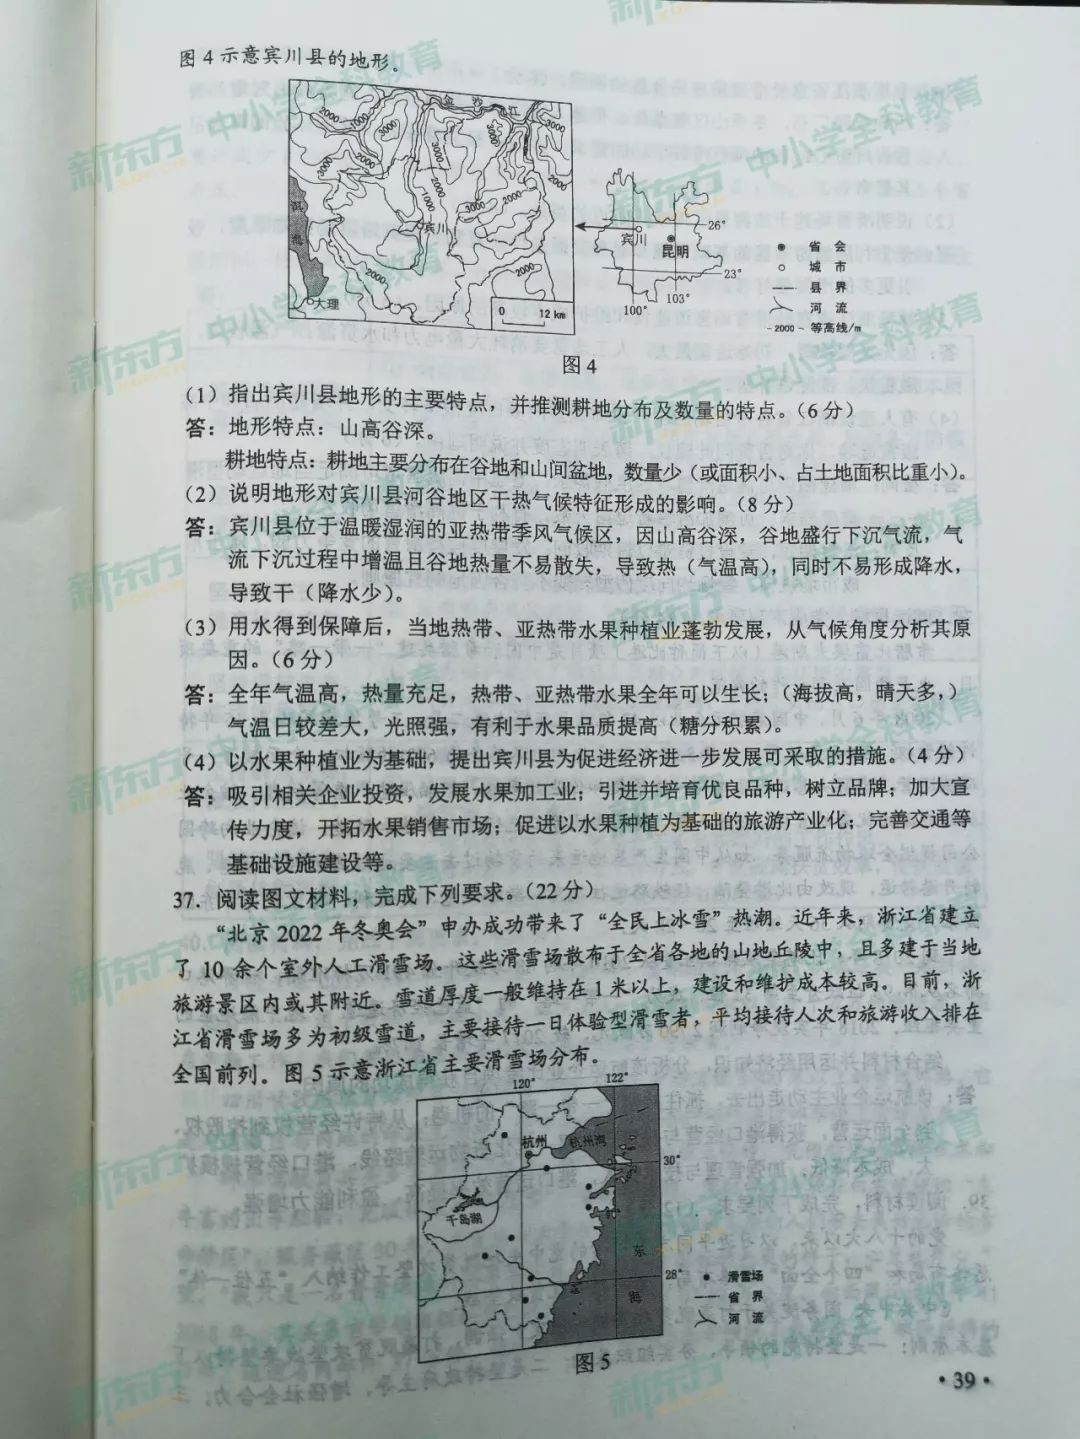 图4示意宾川县的地形。
金 沙 江
2000
3000
3000
2000
3000
3000
3000
2000
1000
3000
2000
2000
洱海
宾川
2000
2000
大理
0 12 km
宾川
昆明
26°
23°
100°
103°
省 会
城 市
县 界
河 流
-2000- 等高线/m
图4
(1) 指出宾川县地形的主要特点，并推测耕地分布及数量的特点。(6分)
答：地形特点：山高谷深。
耕地特点：耕地主要分布在谷地和山间盆地，数量少（或面积小、占土地面积比重小）。
(2) 说明地形对宾川县河谷地区干热气候特征形成的影响。(8分)
答：宾川县位于温暖湿润的亚热带季风气候区，因山高谷深，谷地盛行下沉气流，气
流下沉过程中增温且谷地热量不易散失，导致热（气温高），同时不易形成降水，
导致干（降水少）。
(3) 用水得到保障后，当地热带、亚热带水果种植业蓬勃发展，从气候角度分析其原
因。(6分)
答：全年气温高，热量充足，热带、亚热带水果全年可以生长；（海拔高，晴天多，）
气温日较差大，光照强，有利于水果品质提高（糖分积累）。
(4) 以水果种植业为基础，提出宾川县为促进经济进一步发展可采取的措施。(4分)
答：吸引相关企业投资，发展水果加工业；引进并培育优良品种，树立品牌；加大宣
传力度，开拓水果销售市场；促进以水果种植为基础的旅游产业化；完善交通等
基础设施建设等。
37. 阅读图文材料，完成下列要求。(22分)
“北京2022年冬奥会”申办成功带来了“全民上冰雪”热潮。近年来，浙江省建立
了10余个室外人工滑雪场。这些滑雪场散布于全省各地的山地丘陵中，且多建于当地
旅游景区内或其附近。雪道厚度一般维持在1米以上，建设和维护成本较高。目前，浙
江省滑雪场多为初级雪道，主要接待一日体验型滑雪者，平均接待人次和旅游收入排在
全国前列。图5示意浙江省主要滑雪场分布。
120°
122°
杭州
杭州湾
30°
千岛湖
东
海
28°
滑雪场
省 界
河 流
图5
·39·
新东方 中小学全科教育